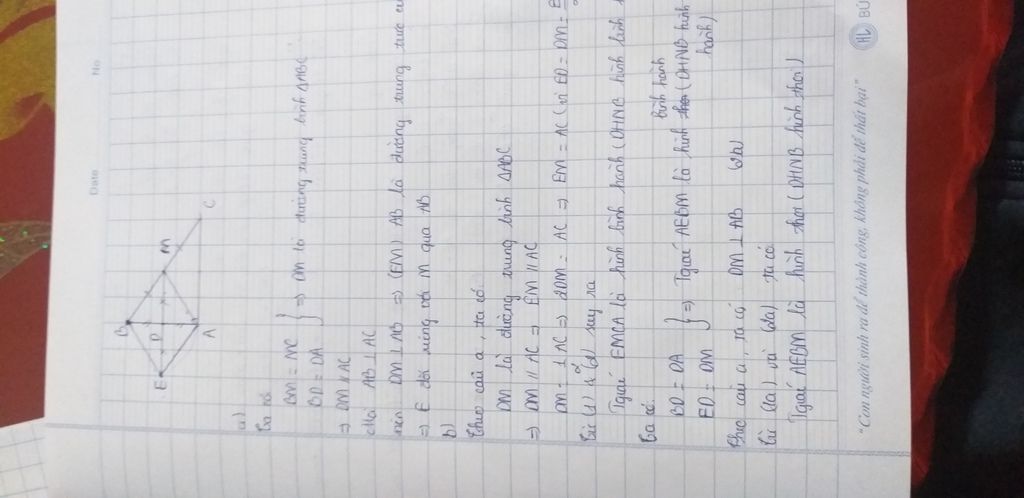 Date No
B
E D M
A C
a)
Ta có
BM = MC
BD = DA } => DM là đường trung bình ΔABC
=> DM // AC
chai AB ⊥ AC
nên DM ⊥ AB => (EM) AB là đường trung trực
=> E đối xứng với M qua AB
b)
Theo câu a, ta có
DM là đường trung bình ΔABC
=> DM // AC => EM // AC
DM = AC => 2DM = AC => EM = AC (vì ED = DM =
Từ (1) & (2) suy ra
Tgiác EMCA là hình bình hành (DHNB hình bình
Ta có
BD = DA bình hành
ED = DM } => Tgiác AEBM là hình (DHNB hình
hành)
Theo câu a, ta có DM ⊥ AB (2a)
Từ (1a) và (2a) ta có
Tgiác AEBM là hình thoi (DHNB hình thoi)
"Con người sinh ra để thành công, không phải để thất bại"
HL BÚ